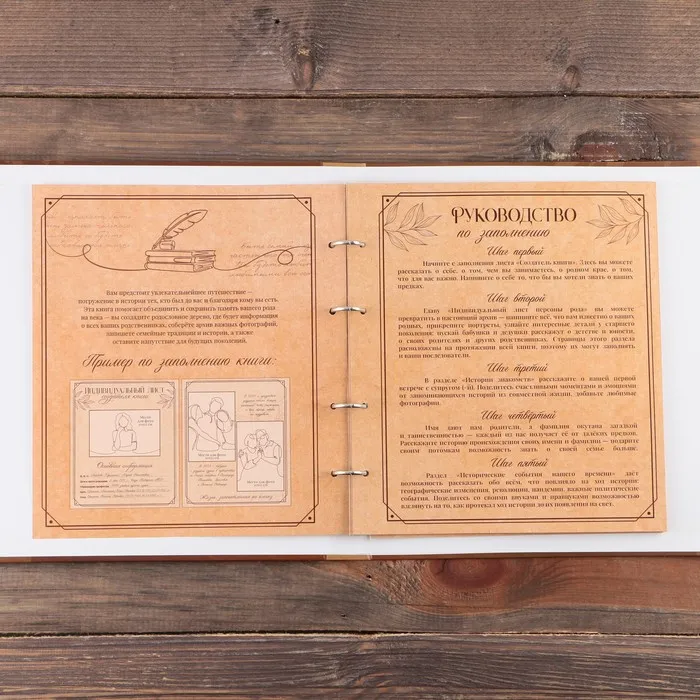 Вам предстоит увлекательнейшее путешествие —
погружение в истории тех, кто был до вас и благодаря кому вы есть.
Эта книга помогает объединить и сохранить память вашего рода
на века — вы создадите родословное дерево, где будет информация
о всех ваших родственниках, соберёте архив важных фотографий,
запишете семейные традиции и истории, а также
оставите напутствие для будущих поколений.
Пример по заполнению книги:
ИНДИВИДУАЛЬНЫЙ ЛИСТ
Основная информация
РУКОВОДСТВО
по заполнению
Шаг первый
Начните с заполнения листа «Создатель книги». Здесь вы можете
рассказать о себе, о том, чем вы занимаетесь, о родном крае, о том,
что для вас важно. Напишите о себе то, что бы вы хотели знать о ваших
предках.
Шаг второй
Главу «Индивидуальный лист персоны рода» вы можете
превратить в настоящий архив — напишите всё, что вам известно о ваших
родных, прикрепите портреты, узнайте интересные детали у старшего
поколения: пускай бабушки и дедушки расскажут о детстве и юности,
о своих родителях и других родственниках. Страницы этого раздела
расположены на протяжении всей книги, поэтому их могут заполнять
и ваши последователи.
Шаг третий
В разделе «Истории знакомств» расскажите о вашей первой
встрече с супругом (-й). Поделитесь счастливыми моментами и эмоциями
от запоминающихся историй из совместной жизни, добавьте любимые
фотографии.
Шаг четвёртый
Имя дают нам родители, а фамилия окутана загадкой
и таинственностью — каждый из нас получает её от далёких предков.
Расскажите историю происхождения своих имени и фамилии — подарите
своим потомкам возможность знать о своей семье больше.
Шаг пятый
Раздел «Исторические события нашего времени» даёт
возможность рассказать обо всём, что повлияло на ход истории:
географические изменения, революции, пандемии, важные политические
события. Поделитесь со своими внуками и правнуками возможностью
взглянуть на то, как протекал ход истории до их появления на свет.